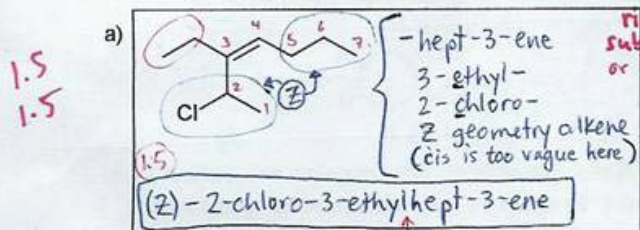 a)
1.5
1.5
3
4
5
6
7
2
1
Cl
Z
-hept-3-ene
3-ethyl-
2-chloro-
Z geometry alkene
(cis is too vague here)
1.5
(Z)-2-chloro-3-ethylhept-3-ene
or